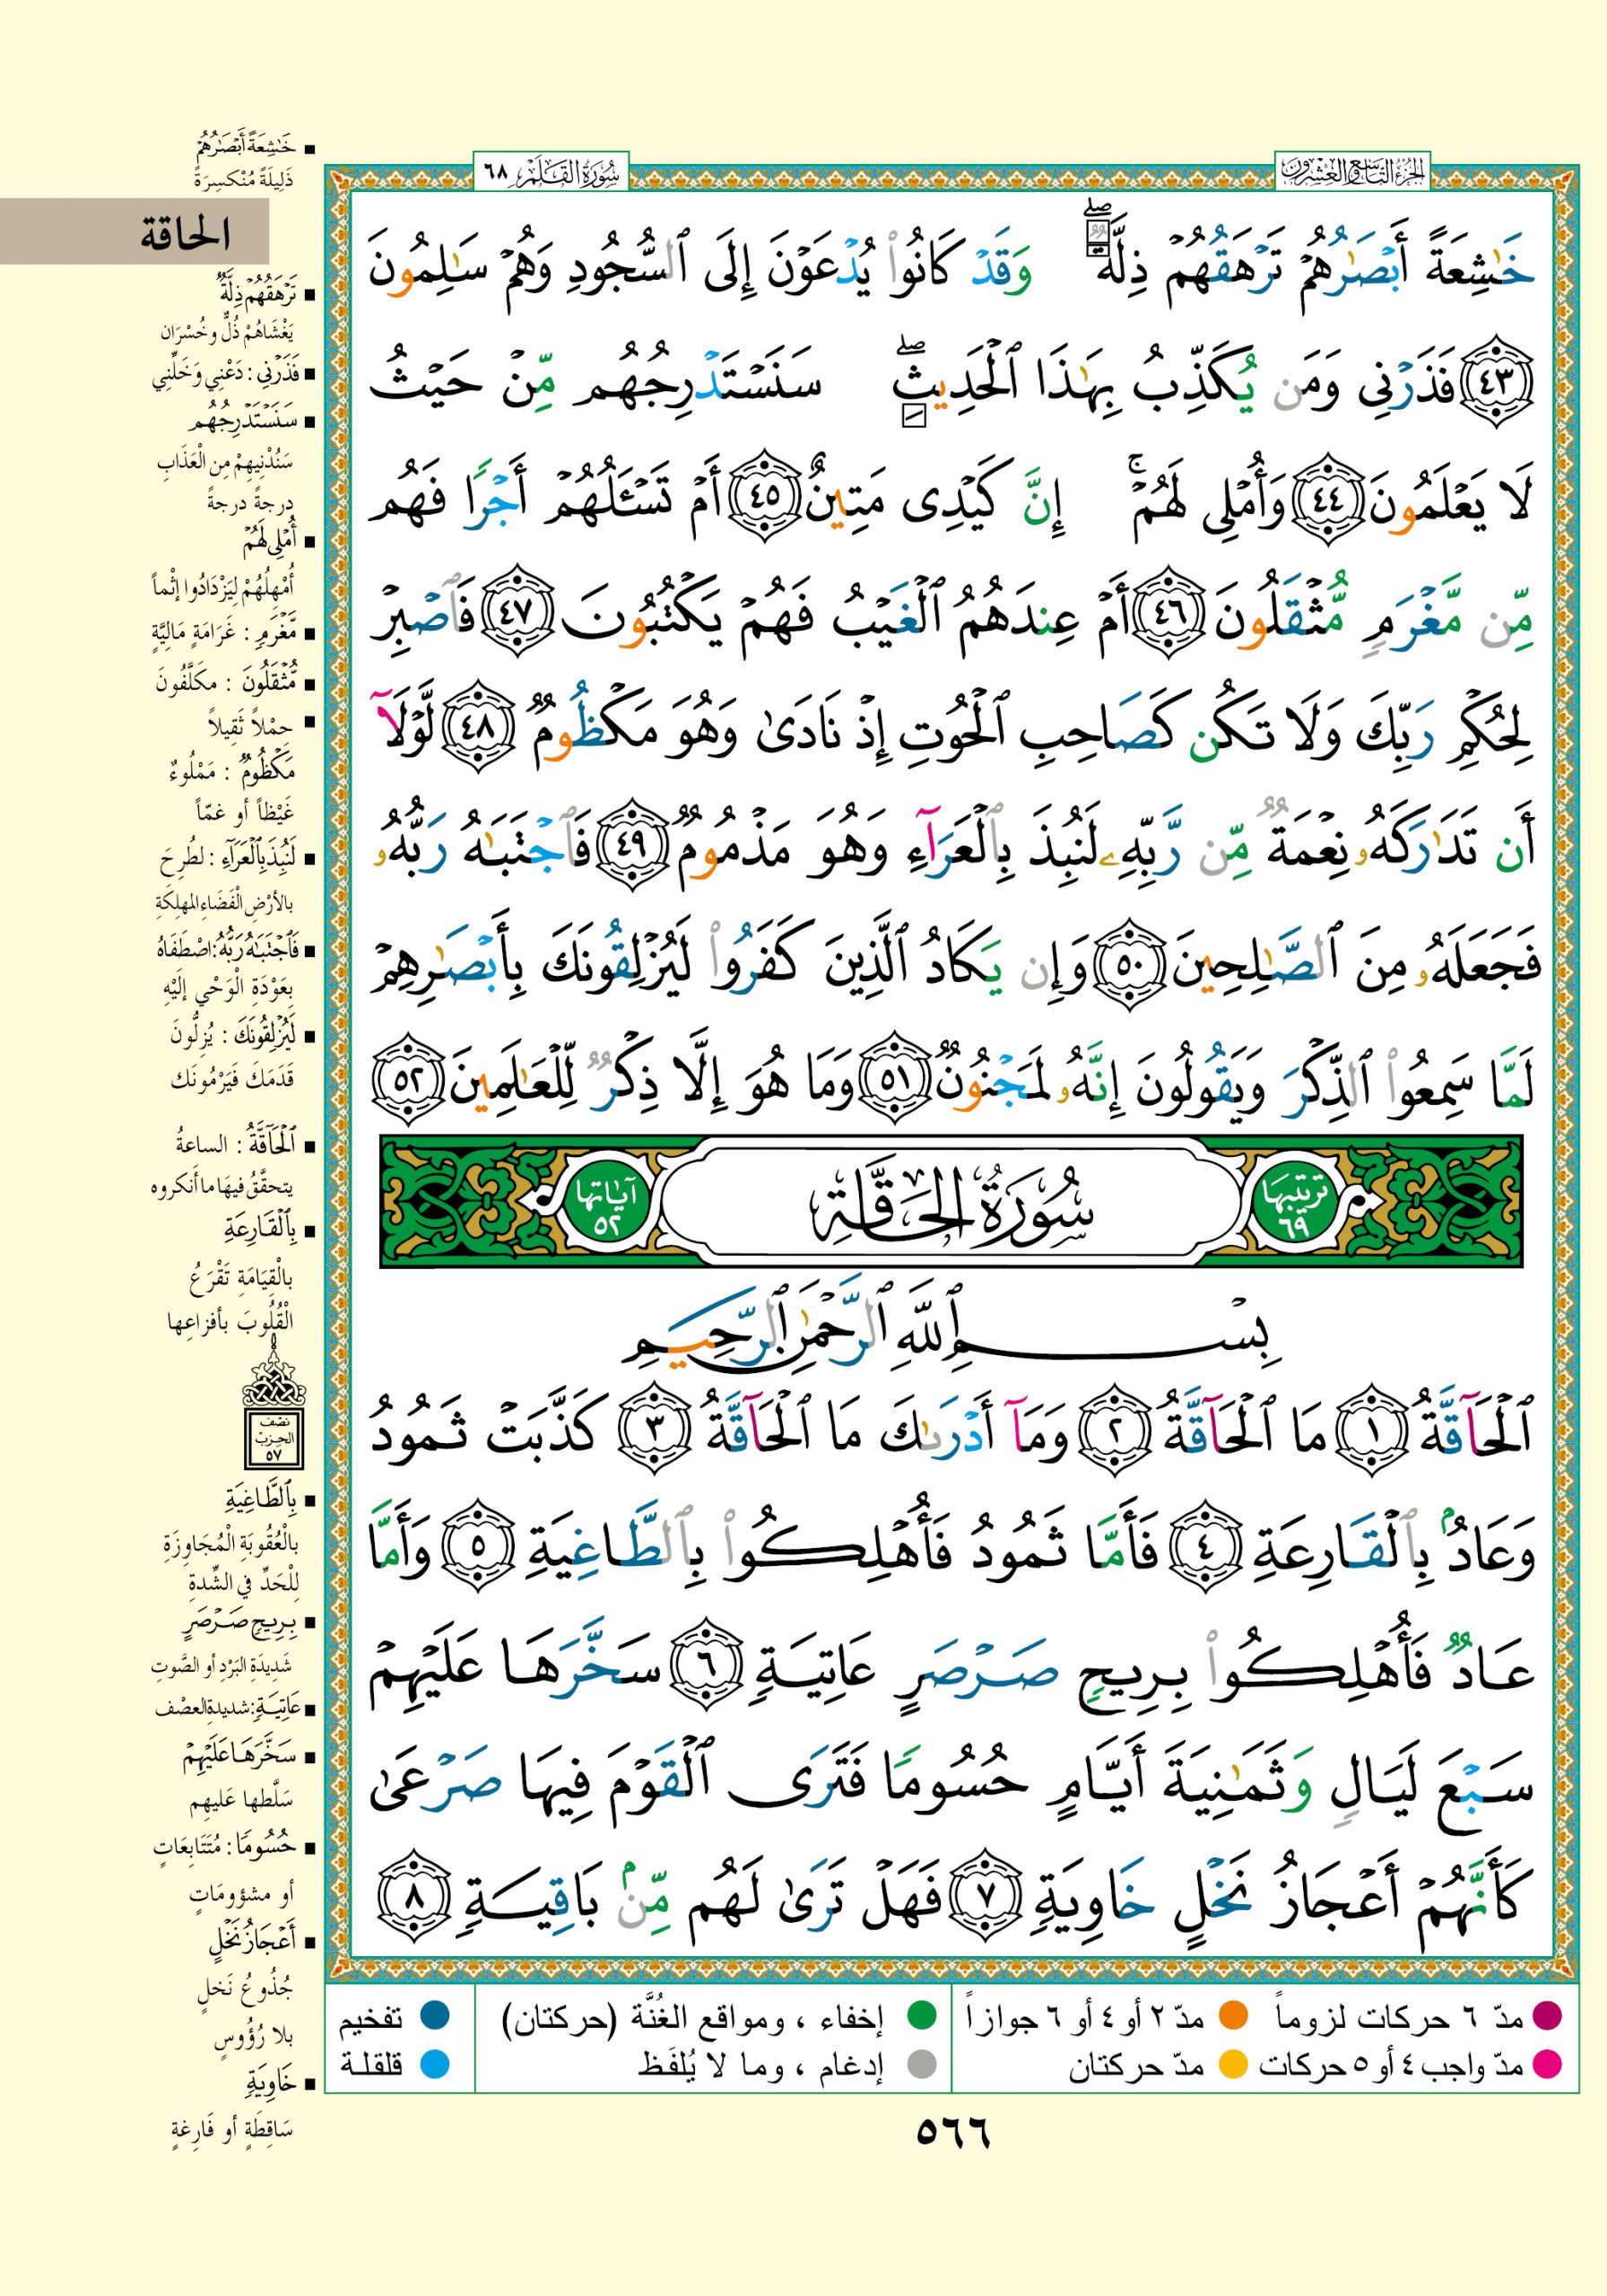 الجزء التاسع والعشرون
سُورَةُ القَلَمِ ٦٨
خَٰشِعَةً أَبۡصَٰرُهُمۡ تَرۡهَقُهُمۡ ذِلَّةٞۖ وَقَدۡ كَانُواْ يُدۡعَوۡنَ إِلَى ٱلسُّجُودِ وَهُمۡ سَٰلِمُونَ
٤٣ فَذَرۡنِي وَمَن يُكَذِّبُ بِهَٰذَا ٱلۡحَدِيثِۖ سَنَسۡتَدۡرِجُهُم مِّنۡ حَيۡثُ
لَا يَعۡلَمُونَ ٤٤ وَأُمۡلِي لَهُمۡۚ إِنَّ كَيۡدِي مَتِينٌ ٤٥ أَمۡ تَسۡـَٔلُهُمۡ أَجۡرٗا فَهُم
مِّن مَّغۡرَمٖ مُّثۡقَلُونَ ٤٦ أَمۡ عِندَهُمُ ٱلۡغَيۡبُ فَهُمۡ يَكۡتُبُونَ ٤٧ فَٱصۡبِرۡ
لِحُكۡمِ رَبِّكَ وَلَا تَكُن كَصَاحِبِ ٱلۡحُوتِ إِذۡ نَادَىٰ وَهُوَ مَكۡظُومٞ ٤٨ لَّوۡلَآ
أَن تَدَٰرَكَهُۥ نِعۡمَةٞ مِّن رَّبِّهِۦ لَنُبِذَ بِٱلۡعَرَآءِ وَهُوَ مَذۡمُومٞ ٤٩ فَٱجۡتَبَٰهُ رَبُّهُۥ
فَجَعَلَهُۥ مِنَ ٱلصَّٰلِحِينَ ٥٠ وَإِن يَكَادُ ٱلَّذِينَ كَفَرُواْ لَيُزۡلِقُونَكَ بِأَبۡصَٰرِهِمۡ
لَمَّا سَمِعُواْ ٱلذِّكۡرَ وَيَقُولُونَ إِنَّهُۥ لَمَجۡنُونٞ ٥١ وَمَا هُوَ إِلَّا ذِكۡرٞ لِّلۡعَٰلَمِينَ ٥٢
ترتيبها ٦٩
سُورَةُ الحَاقَّةِ
آياتها ٥٢
بِسۡمِ ٱللَّهِ ٱلرَّحۡمَٰنِ ٱلرَّحِيمِ
ٱلۡحَآقَّةُ ١ مَا ٱلۡحَآقَّةُ ٢ وَمَآ أَدۡرَىٰكَ مَا ٱلۡحَآقَّةُ ٣ كَذَّبَتۡ ثَمُودُ
وَعَادُۢ بِٱلۡقَارِعَةِ ٤ فَأَمَّا ثَمُودُ فَأُهۡلِكُواْ بِٱلطَّاغِيَةِ ٥ وَأَمَّا
عَادٞ فَأُهۡلِكُواْ بِرِيحٖ صَرۡصَرٍ عَاتِيَةٖ ٦ سَخَّرَهَا عَلَيۡهِمۡ
سَبۡعَ لَيَالٖ وَثَمَٰنِيَةَ أَيَّامٍ حُسُومٗا فَتَرَى ٱلۡقَوۡمَ فِيهَا صَرۡعَىٰ
كَأَنَّهُمۡ أَعۡجَازُ نَخۡلٍ خَاوِيَةٖ ٧ فَهَلۡ تَرَىٰ لَهُم مِّنۢ بَاقِيَةٖ ٨
خَٰشِعَةً أَبۡصَٰرُهُمۡ
ذَلِيلَةً مُنْكَسِرَةً
الحاقة
تَرۡهَقُهُمۡ ذِلَّةٞ
يَغْشَاهُمْ ذُلٌّ وخُسْرَان
فَذَرۡنِي : دَعْنِي وَخَلِّنِي
سَنَسۡتَدۡرِجُهُم
سَنُدْنِيهِمْ مِن الْعَذَابِ
درجةً درجةً
أُمۡلِي لَهُمۡ
أُمْهِلُهُمْ لِيَزْدَادُوا إثْماً
مَّغۡرَمٖ : غَرَامَةٍ مَالِيَّةٍ
مُّثۡقَلُونَ : مكَلَّفُونَ
حمْلاً ثَقِيلاً
مَكۡظُومٞ : مَمْلُوءٌ
غَيْظاً أو غمّاً
لَنُبِذَ بِٱلۡعَرَآءِ : لطُرِحَ
بالأرْضِ الْفَضَاءِ المهلِكَةِ
فَٱجۡتَبَٰهُ رَبُّهُۥ : اصْطَفَاهُ
بِعَوْدَةِ الْوَحْيِ إلَيْهِ
لَيُزۡلِقُونَكَ : يُزِلُّونَ
قَدَمَكَ فَيَرْمُونَك
ٱلۡحَآقَّةُ : الساعةُ
يتحقَّقُ فيهَا ما أَنكروه
بِٱلۡقَارِعَةِ
بالْقِيَامَةِ تَقْرَعُ
الْقُلُوبَ بأفزاعِها
نصف
الحزب
٥٧
بِٱلطَّاغِيَةِ
بالْعُقُوبَةِ الْمُجَاوِزَةِ
لِلْحَدِّ في الشِّدةِ
بِرِيحٖ صَرۡصَرٍ
شَدِيدَةِ البَرْدِ أو الصَّوتِ
عَاتِيَةٖ : شديدةِ العصْف
سَخَّرَهَا عَلَيۡهِمۡ
سَلَّطها عَليهِم
حُسُومٗا : مُتَتَابِعَاتٍ
أو مشؤومَاتٍ
أَعۡجَازُ نَخۡلٍ
جُذُوعُ نَخلٍ
بلا رُؤُوسٍ
خَاوِيَةٖ
سَاقِطَةٍ أو فَارِغةٍ
مدّ ٦ حركات لزوماً
مدّ ٢ أو ٤ أو ٦ جوازاً
إخفاء ، ومواقع الغُنَّة (حركتان)
تفخيم
مدّ واجب ٤ أو ٥ حركات
مدّ حركتان
إدغام ، وما لا يُلفَظ
قلقلة
٥٦٦